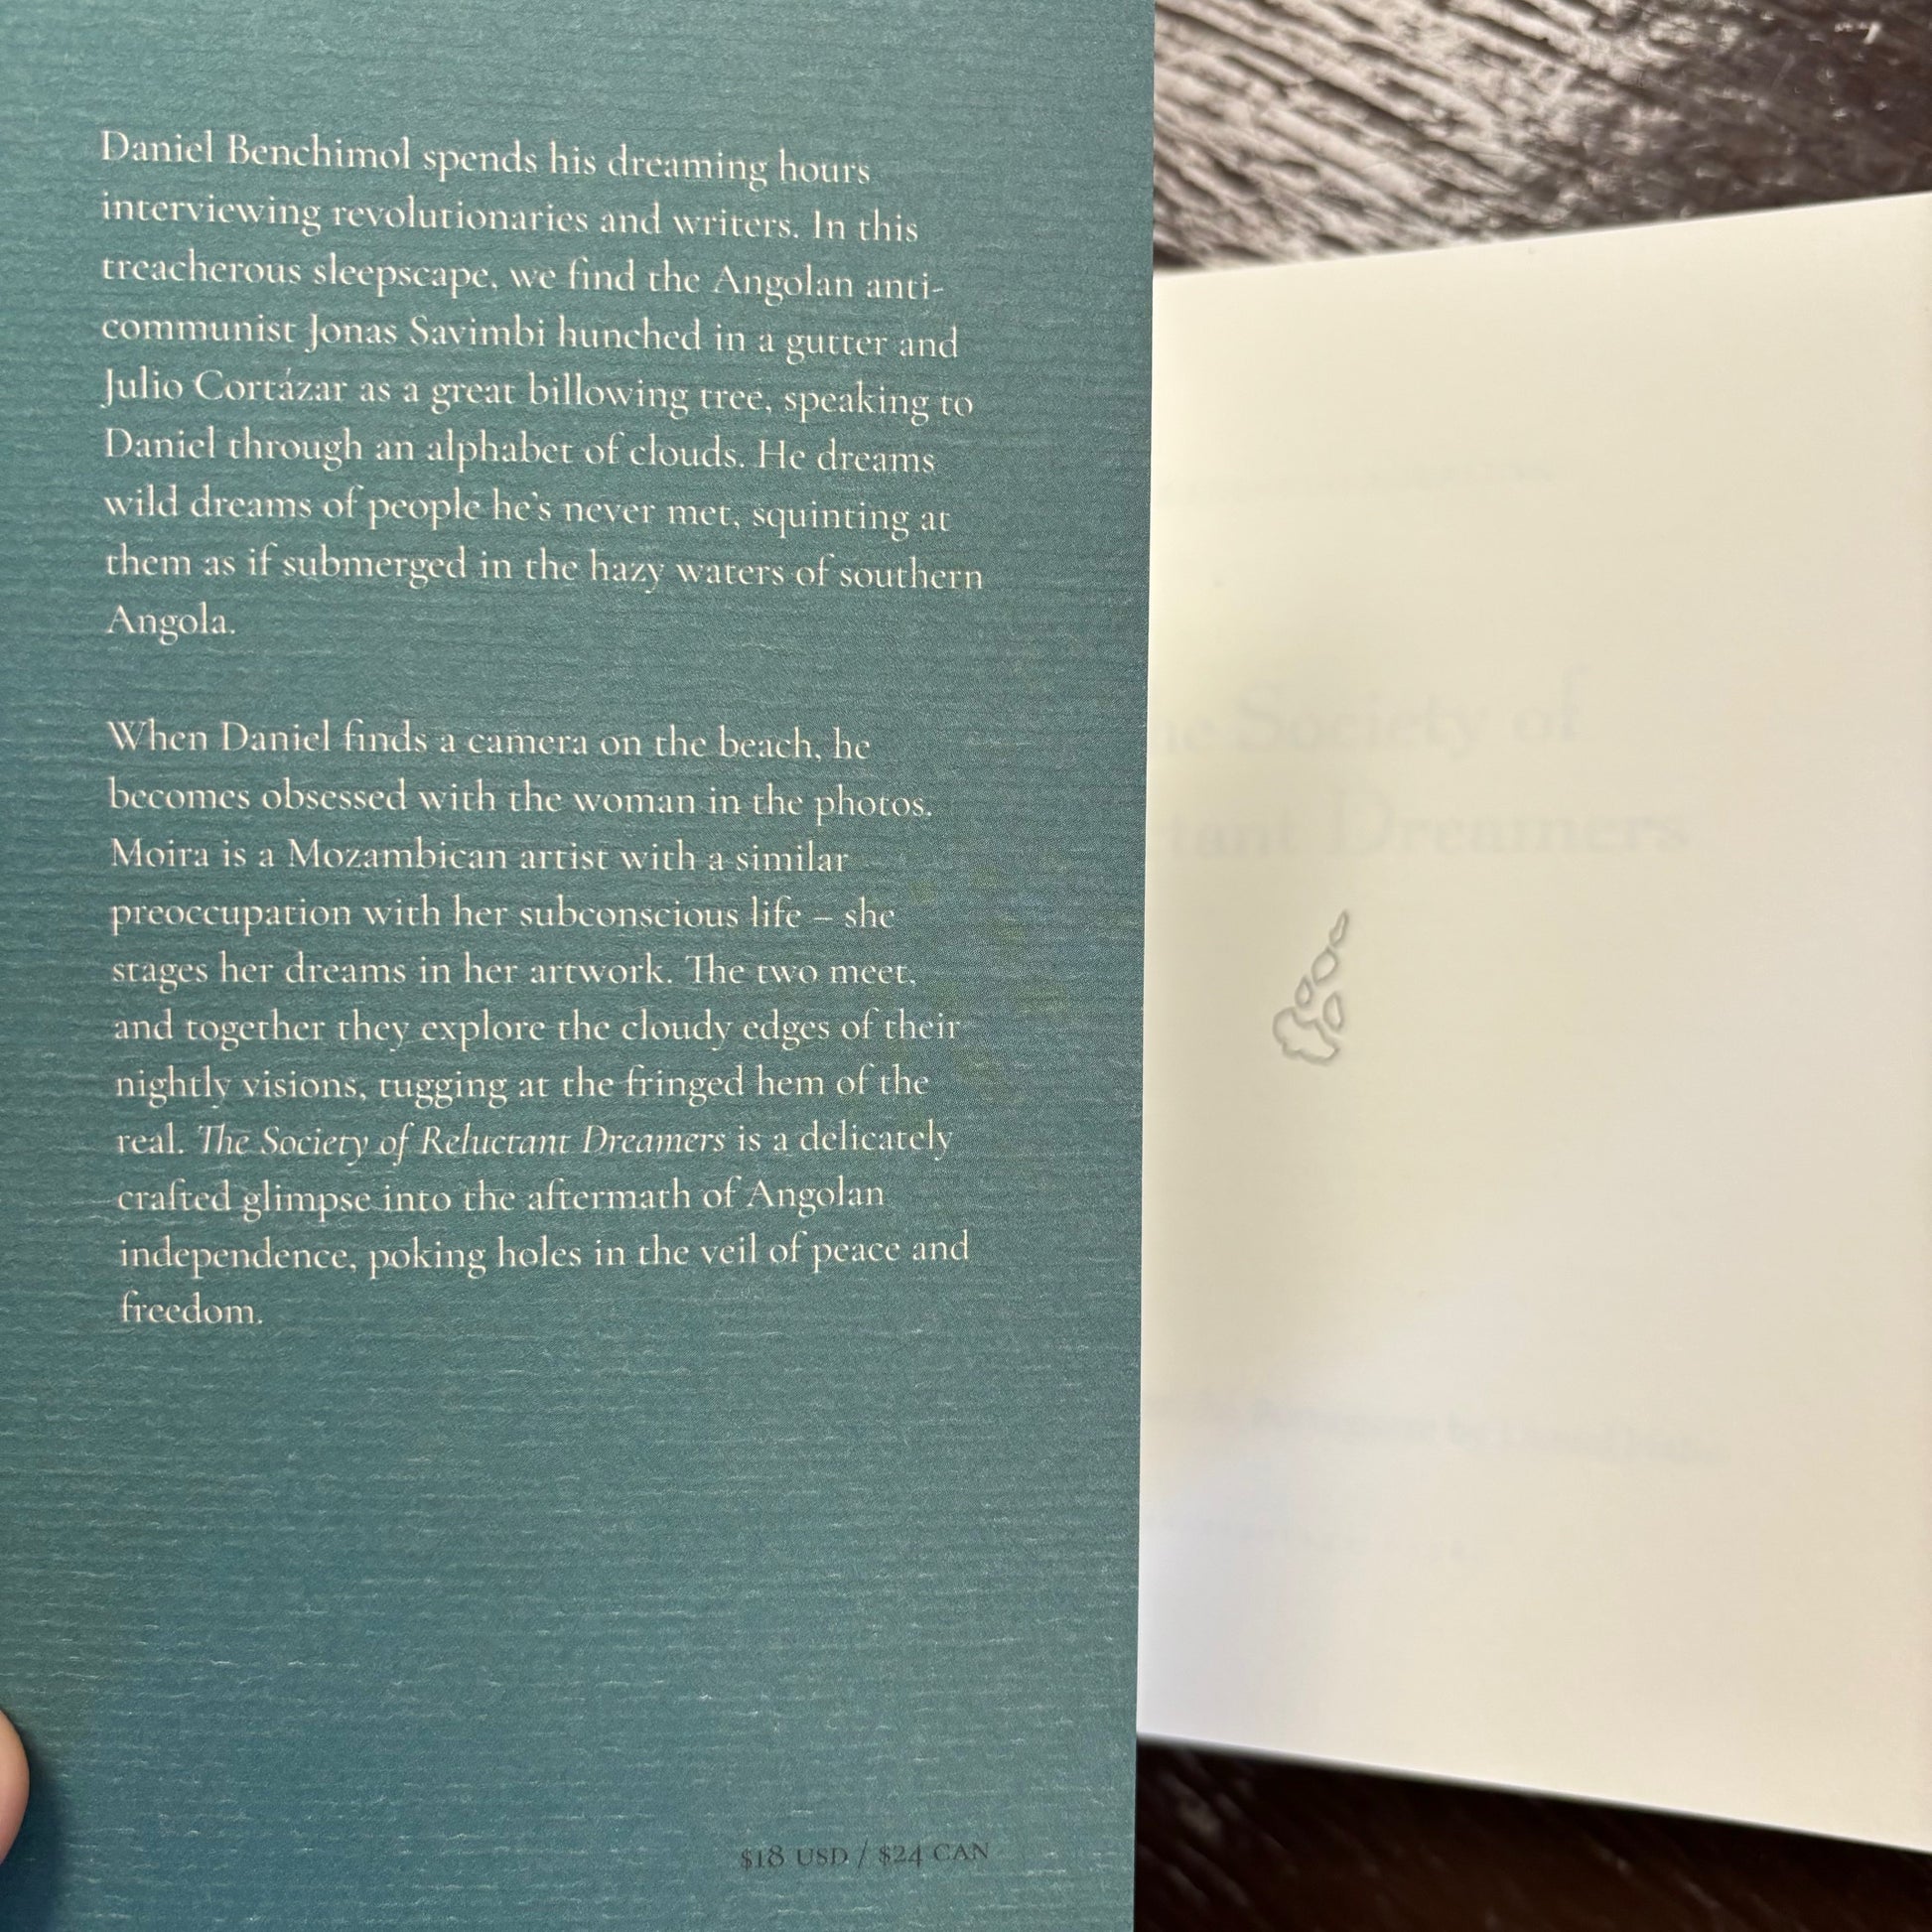 Daniel Benchimol spends his dreaming hours
interviewing revolutionaries and writers. In this
treacherous sleepscape, we find the Angolan anti-
communist Jonas Savimbi hunched in a gutter and
Julio Cortázar as a great billowing tree, speaking to
Daniel through an alphabet of clouds. He dreams
wild dreams of people he's never met, squinting at
them as if submerged in the hazy waters of southern
Angola.
When Daniel finds a camera on the beach, he
becomes obsessed with the woman in the photos.
Moira is a Mozambican artist with a similar
preoccupation with her subconscious life – she
stages her dreams in her artwork. The two meet,
and together they explore the cloudy edges of their
nightly visions, tugging at the fringed hem of the
real. The Society of Reluctant Dreamers is a delicately
crafted glimpse into the aftermath of Angolan
independence, poking holes in the veil of peace and
freedom.
$18 USD / $24 CAN
he Society of
ctant Dreamers